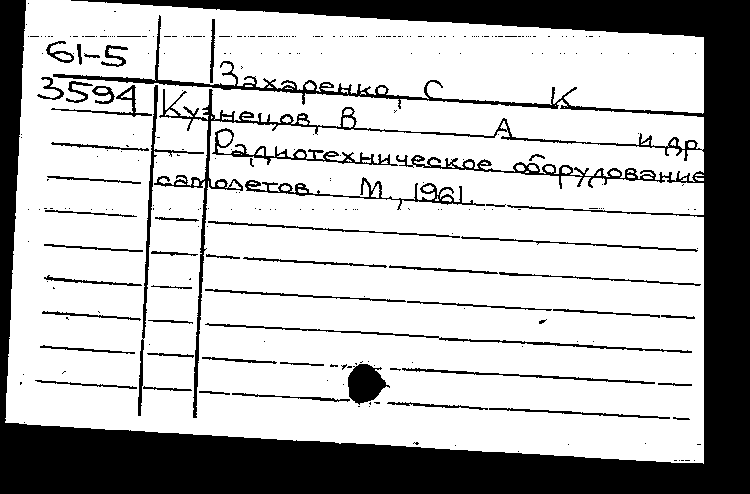 61-5
Захаренко, С К
3594 Кузнецов, В А и др.
Радиотехническое оборудование
самолетов. М., 1961.